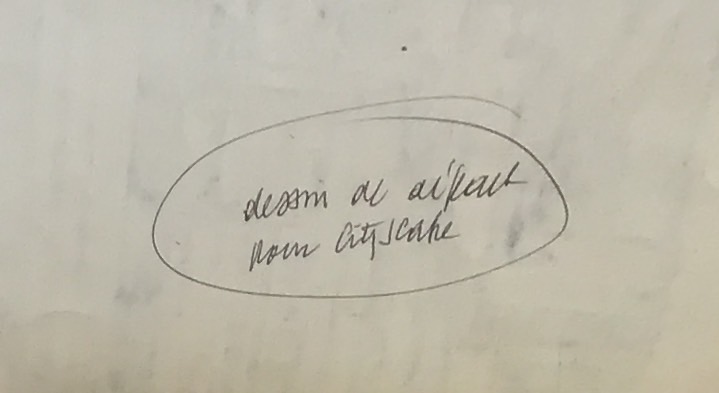 dessin de départ
pour Cityscape